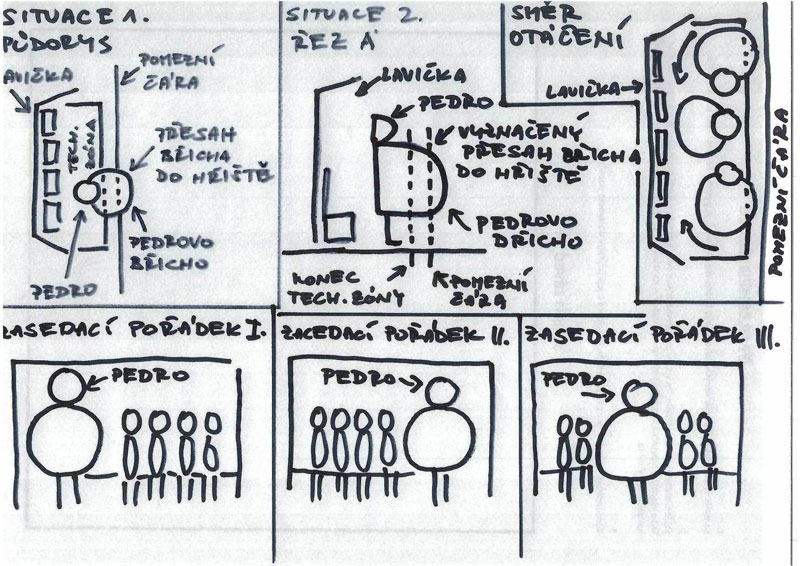 SITUACE 1.
PŮDORYS
LAVIČKA
POMEZNÍ
ČÁRA
TECH.
ZÓNA
PŘESAH
BŘICHA
DO HŘIŠTĚ
PEDROVO
BŘICHO
PEDRO
SITUACE 2.
ŘEZ A
LAVIČKA
PEDRO
VYZNAČENÝ
PŘESAH BŘICHA
DO HŘIŠTĚ
PEDROVO
BŘICHO
KONEC
TECH. ZÓNY
POMEZNÍ
ČÁRA
SMĚR
OTÁČENÍ
LAVIČKA
POMEZNÍ ČÁRA
ZASEDACÍ POŘÁDEK I.
PEDRO
ZASEDACÍ POŘÁDEK II.
PEDRO
ZASEDACÍ POŘÁDEK III.
PEDRO